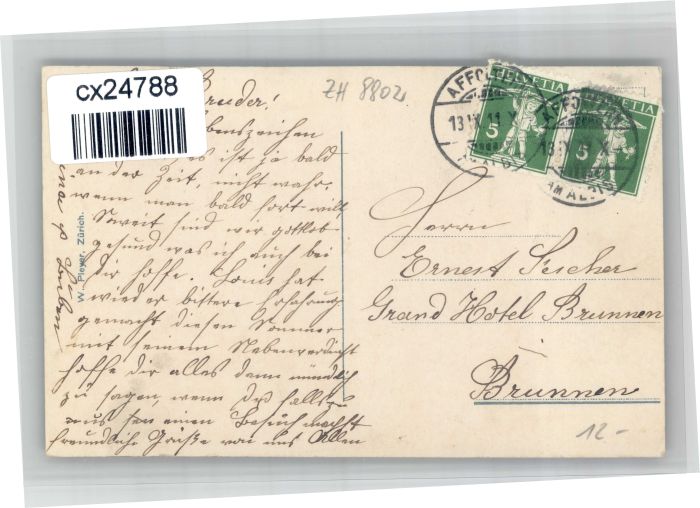 cx24788
ZH 8802
Bruder!
Lebenszeichen
es ist ja bald
an der Zeit, nicht wahr,
wenn man bald fort will
Soweit sind wir gottlob
gesund was ich auch bei
Dir hoffe. Louis hat
wieder bittere Erfahrung
gemacht diesen Sommer
mit einem Nebenverdienst
hoffe Dir alles dann mündlich
zu sagen, wenn Du
uns einen Besuch machst
freundliche Grüße von uns Allen
W. Pleyer, Zürich.
HELVETIA
5
HELVETIA
5
AFFOLTERN
13.IX.11.X
AM ALBIS
AFFOLTERN
13.IX.11.X
AM ALBIS
Herrn
Ernest Fischer
Grand Hotel Brunnen
Brunnen
12-